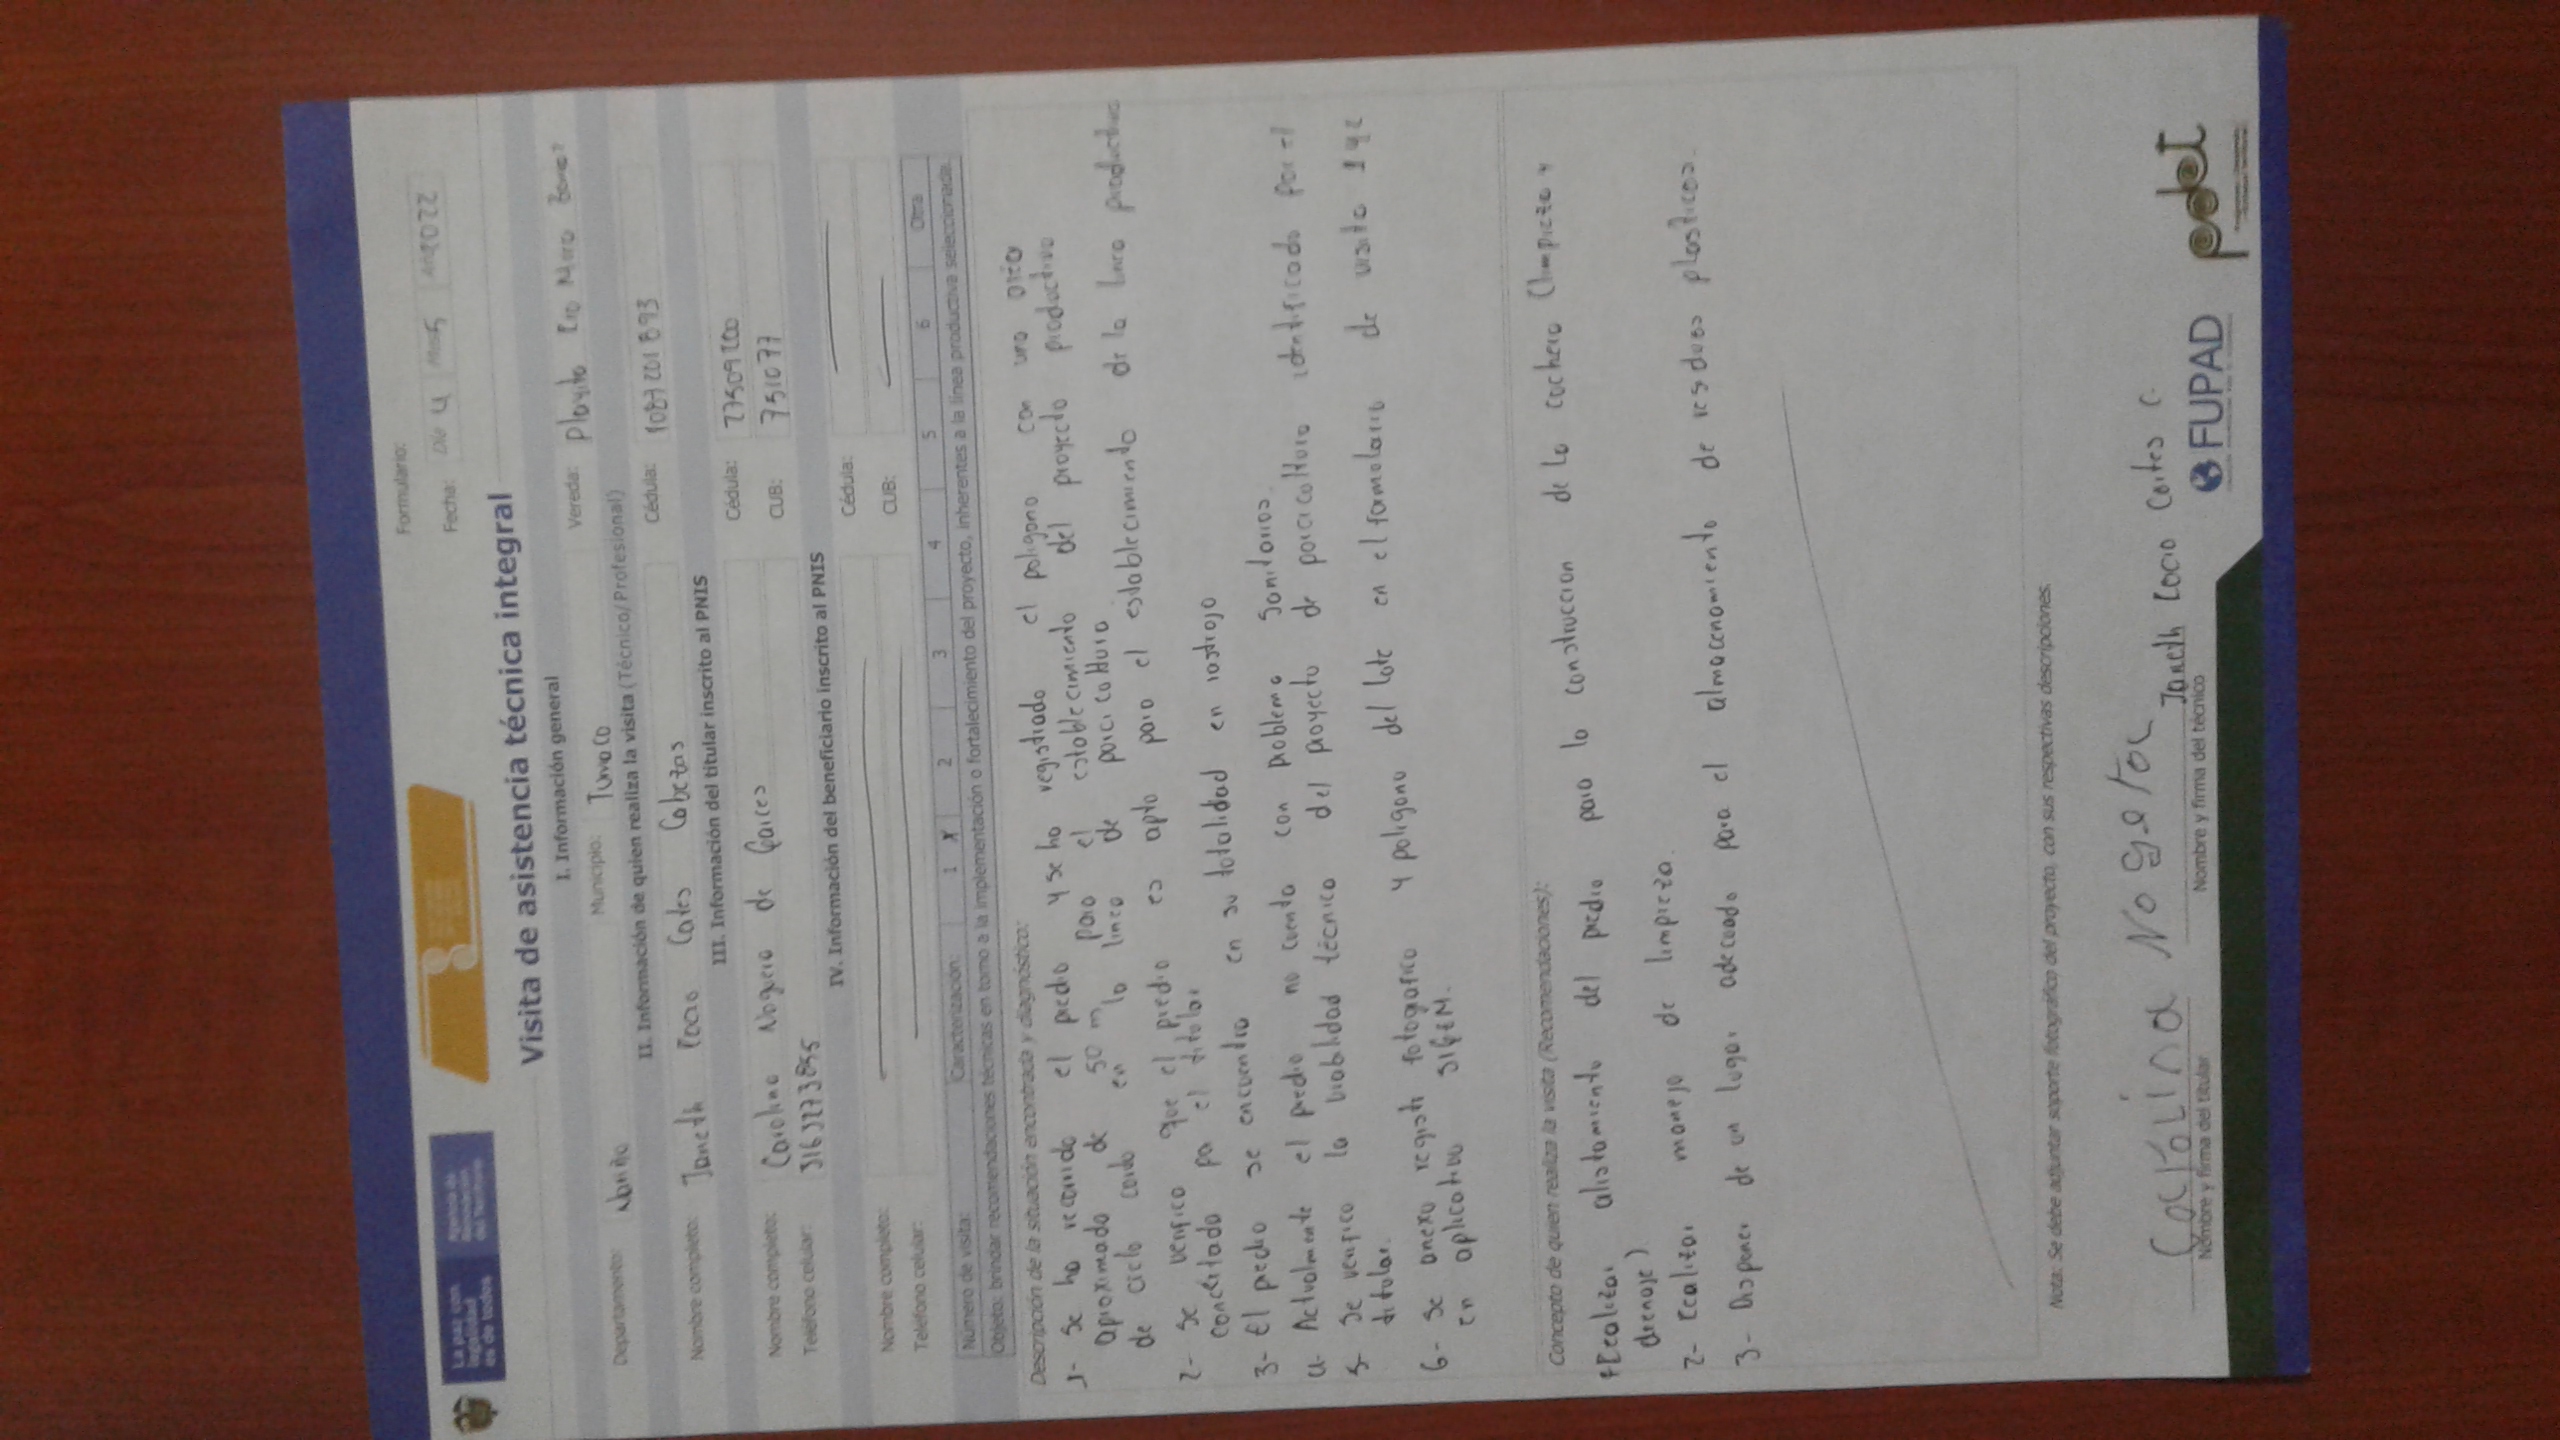 La paz con
legalidad
es de todos
Agencia de
Renovación
del Territorio
Formulario:
Fecha: Dia 4 Mes 5 Año 22
Visita de asistencia técnica integral
I. Información general
Departamento: Nariño Municipio: Tumaco Vereda: Playita Rio
II. Información de quien realiza la visita (Técnico/Profesional)
Nombre completo: Janeth Rocio Cortes Cabezas Cédula: 1087201893
III. Información del titular inscrito al PNIS
Nombre completo: Carolina Nogera de Garces Cédula: 27509200
Teléfono celular: 3163273855 CUB: 751077
IV. Información del beneficiario inscrito al PNIS
Nombre completo: Cédula:
Teléfono celular: CUB:
Número de visita: Caracterización: 1 X 2 3 4 5 6 Otra
Objeto: brindar recomendaciones técnicas en torno a la implementación o fortalecimiento del proyecto, inherentes a la línea productiva seleccionada.
Descripción de la situación encontrada y diagnóstico:
1- Se ha recorrido el predio y se ha registrado el poligono con una area
aproximado de 50 m para el establecimiento del proyecto productivo
de ciclo corto en la linea de porcicultura
2- se verifico que el predio es apto para el establecimiento de la linea productiva
concertado por el titular
3- El predio se encuentra en su totalidad en rastrojo
4- Actualmente el predio no cuenta con problema sanitarios.
5- Se verifico la viabilidad técnica del proyecto de porcicultura identificado por el
titular.
6- Se anexo registr fotografico y poligono del lote en el formulario de visita 1 que
en aplicativo SIGEM.
Concepto de quien realiza la visita (Recomendaciones):
1-Realizar alistamiento del predio para la construccion de la cochera (limpieza y
drenaje)
2- Realizar manejo de limpieza.
3- Disponer de un lugar adecuado para el almacenamiento de residuos plasticos.
Nota: Se debe adjuntar soporte fotográfico del proyecto, con sus respectivas descripciones.
No gera Janeth Rocio Cortes C.
Nombre y firma del titular Nombre y firma del técnico
FUPAD
pdet